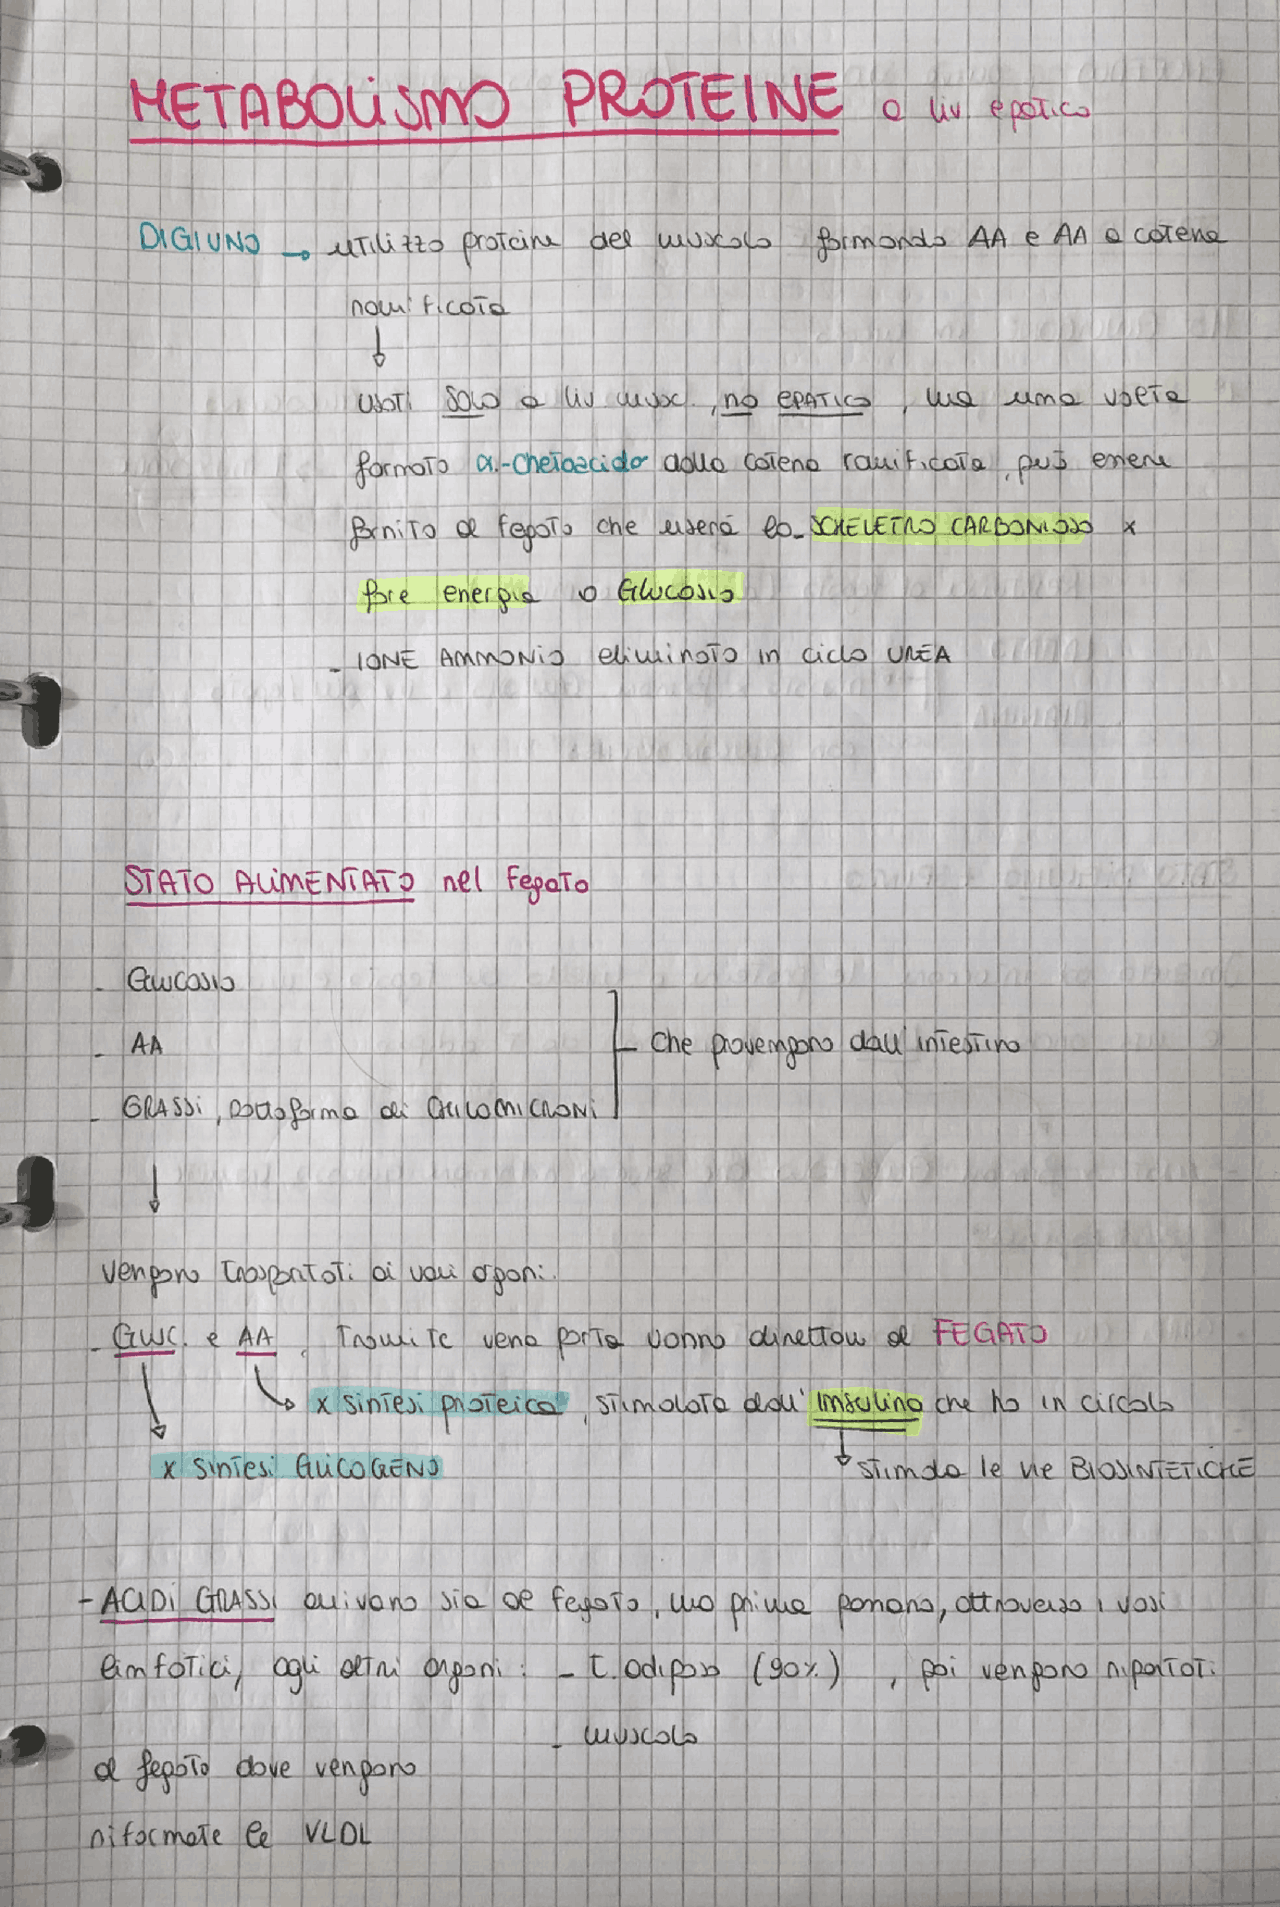 METABOLISMO PROTEINE a liv. epatico
DIGIUNO → utilizzo proteine del muscolo formando AA e AA a catena
ramificata
↓
usati SOLO a liv musc., no EPATICO, ma una volta
formato α-chetoacido dalla catena ramificata, può essere
fornito al fegato che userà lo SCHELETRO CARBONIOSO x
fare energia o Glucosio
- IONE AMMONIO eliminato in ciclo UREA
STATO ALIMENTATO nel fegato
- Glucosio
- AA
- GRASSI, sottoforma di CHILOMICRONI
Che provengono dall'intestino
↓
vengono trasportati ai vari organi.
- GLUC. e AA, Tramite vena porta vanno direttam al FEGATO
↳ x sintesi proteica, stimolata dall'insulina che ho in circolo
↓ x sintesi GLICOGENO
↳ stimola le vie BIOSINTETICHE
- ACIDI GRASSI arrivano sia al fegato, ma prima passano, attraverso i vasi
limfatici, agli altri organi: - t. adiposo (90%), poi vengono riportati
- muscolo
al fegato dove vengono
riformate le VLDL